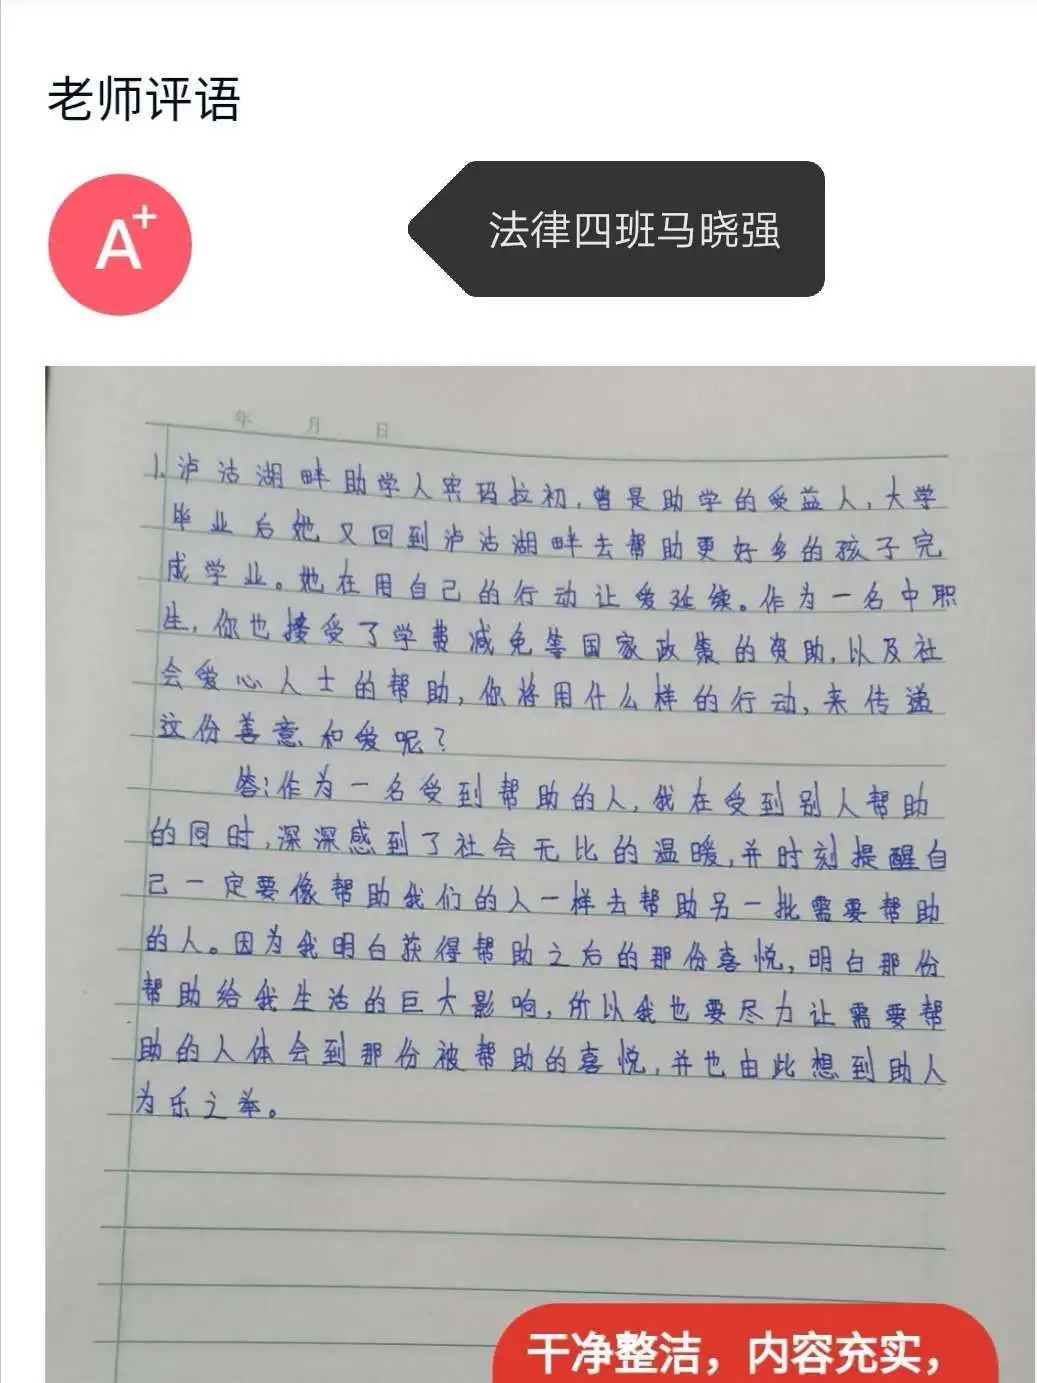 老师评语
A+
法律四班马晓强
年 月 日
1.泸沽湖畔助学人宾玛拉初,曾是助学的受益人,大学
毕业后她又回到泸沽湖畔去帮助更好多的孩子完
成学业。她在用自己的行动让爱延续。作为一名中职
生,你也接受了学费减免等国家政策的资助,以及社
会爱心人士的帮助,你将用什么样的行动,来传递
这份善意和爱呢?
答:作为一名受到帮助的人,我在受到别人帮助
的同时,深深感到了社会无比的温暖,并时刻提醒自
己一定要像帮助我们的人一样去帮助另一批需要帮助
的人。因为我明白获得帮助之后的那份喜悦,明白那份
帮助给我生活的巨大影响,所以我也要尽力让需要帮
助的人体会到那份被帮助的喜悦,并也由此想到助人
为乐之举。
干净整洁，内容充实，